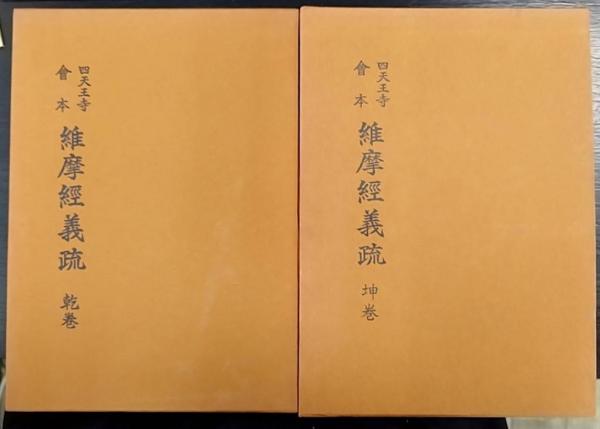 四天王寺
會本
維摩經義疏 乾卷
四天王寺
會本
維摩經義疏 坤卷